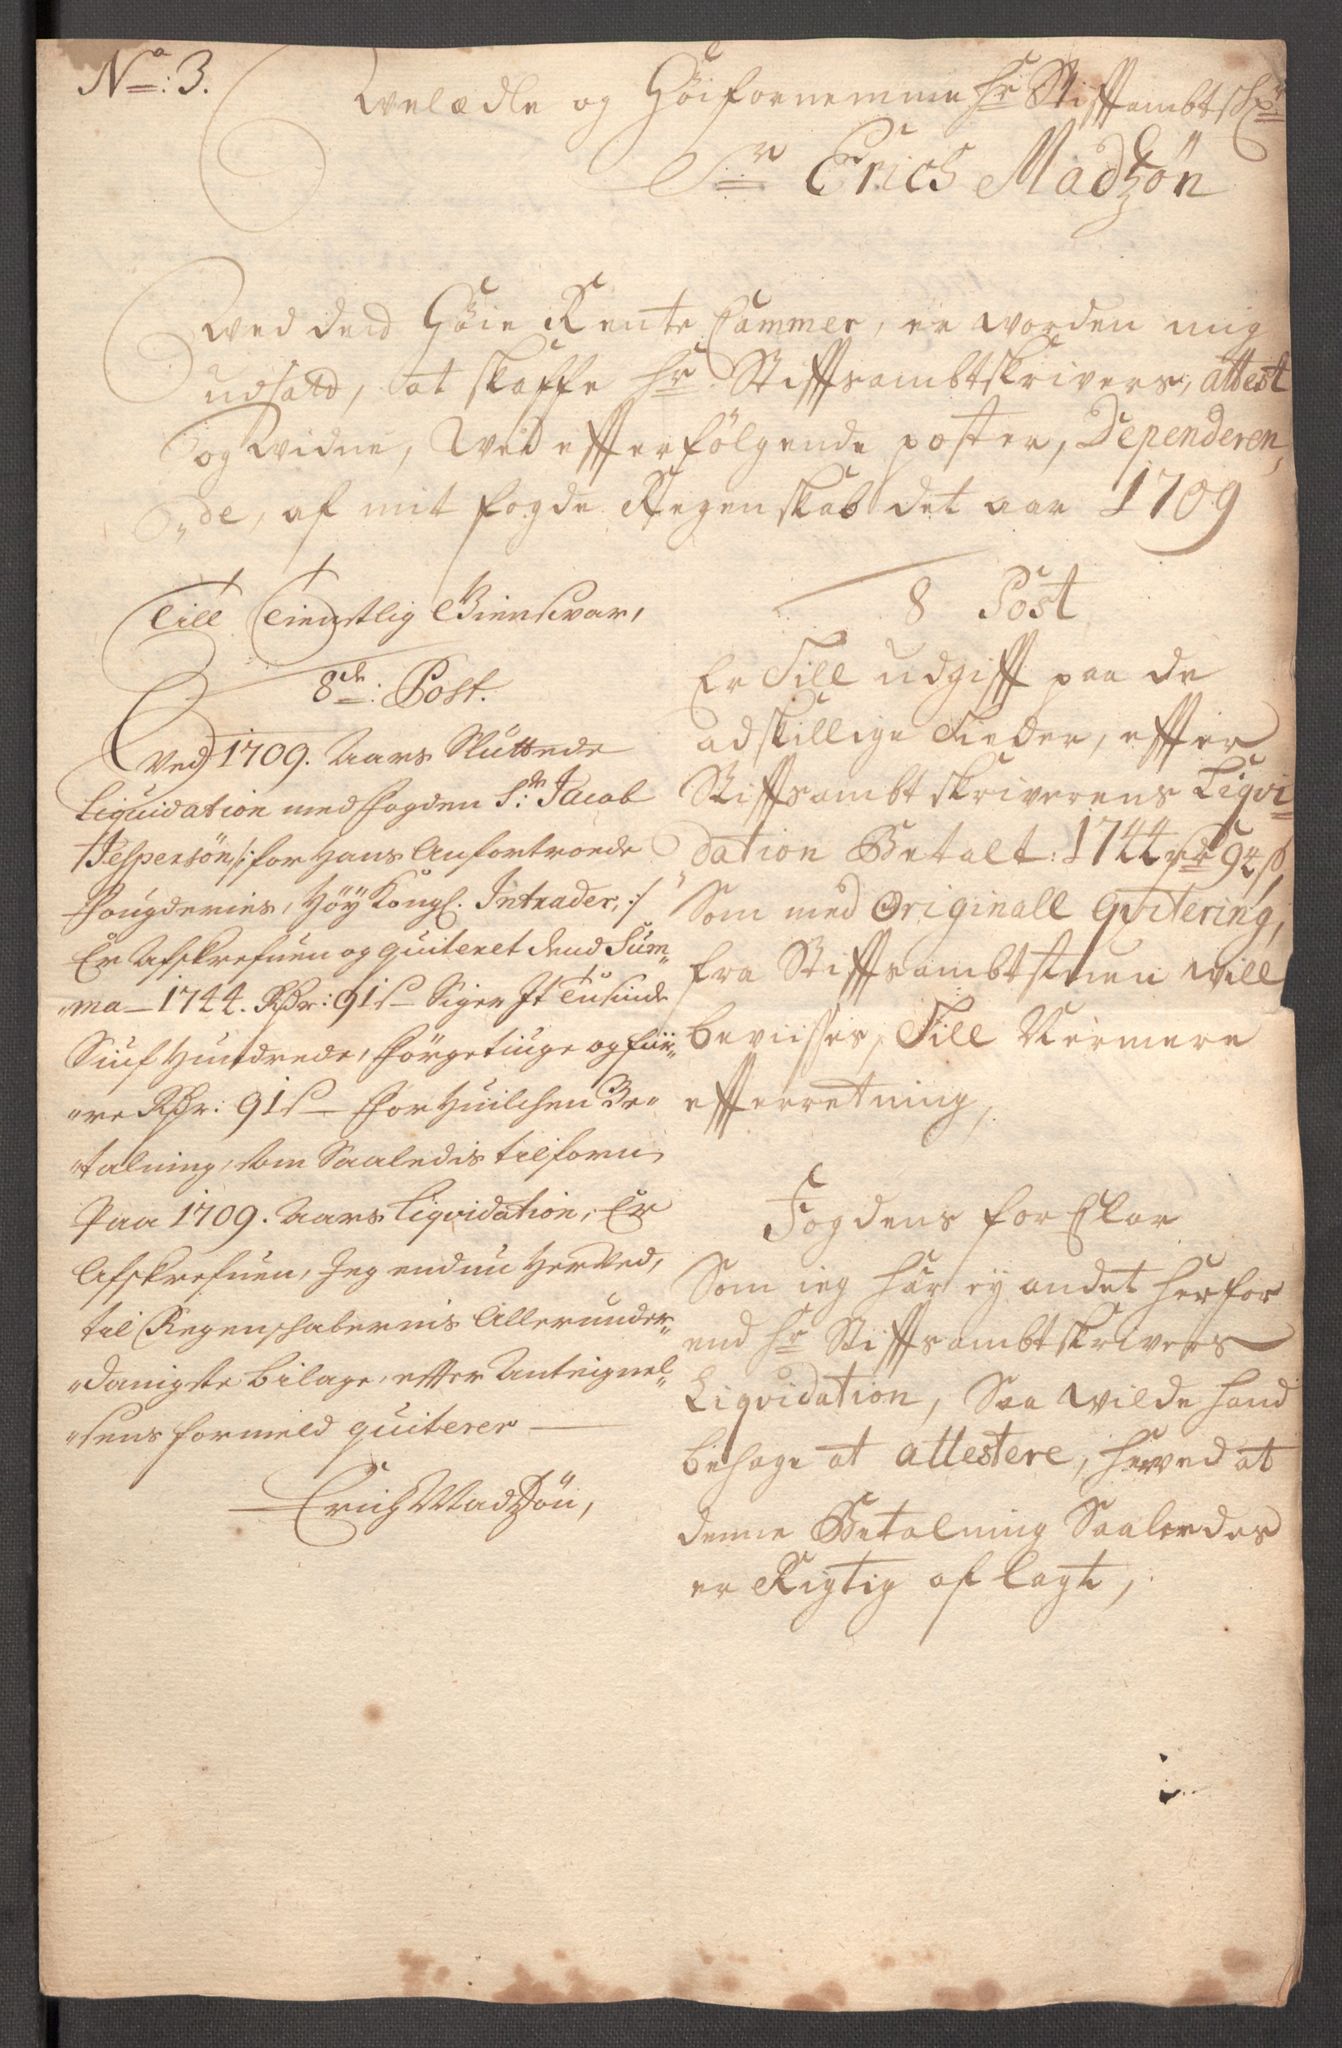 No: 3.
Welædle og Höifornemme hr Stiffambtschr
Sr Erich Madtzön
Wed dend Höie Rente Cammer, er worden mig
udsatt, at skaffe hr Stiffsambtskrivers, attest
og widne, Wed effterfölgende poster, Dependeren,
"de, af mit fogde Regenskab det aar 1709
Till Tienstlig Giensvar,
8de: Post.
Ved 1709. Aars Sluttede
Liquidation med fogden Sr. Jacob
Jespersön /: for hans Anfortroede
fougderies, Höy Kongl. Intrader, :/
Er Afskrefuen og quiteret dend Sum-
"ma – 1744. Rdr: 91 s – Siger Et Tusinde
Siuf Hundrede,förgetiuge og fiir-
"re Rdr: 91 s – for huilchen Be-
"talning, som Saaledis tilforn
Paa 1709. Aars Liqvidation, Er
Afskrefuen, Jeg endnu Herved,
til Regenschabernis Allerunder-
"danigste bilage, efter Anteignel-
"sens formeld quiterer —
Erich Madtzön,
8 Post
Er Till udgifft paa de
adskillige Tieder, effter
Stiffsambtskriverens Liqvi-
"dation Betalt: 1744 rdr 94 s,
Som med Originall Qvitering,
fra Stiffsambtstuen will
bevisses, Till Nermere
effterretning,
Fogdens forklar
Som ieg har ey andet herfor
end hr Stiffsambtskrivers
Liqvidation, Saa wilde hand
behage at attestere, herved at
denne Betalning Saaledes
er Rigtig aflagt,